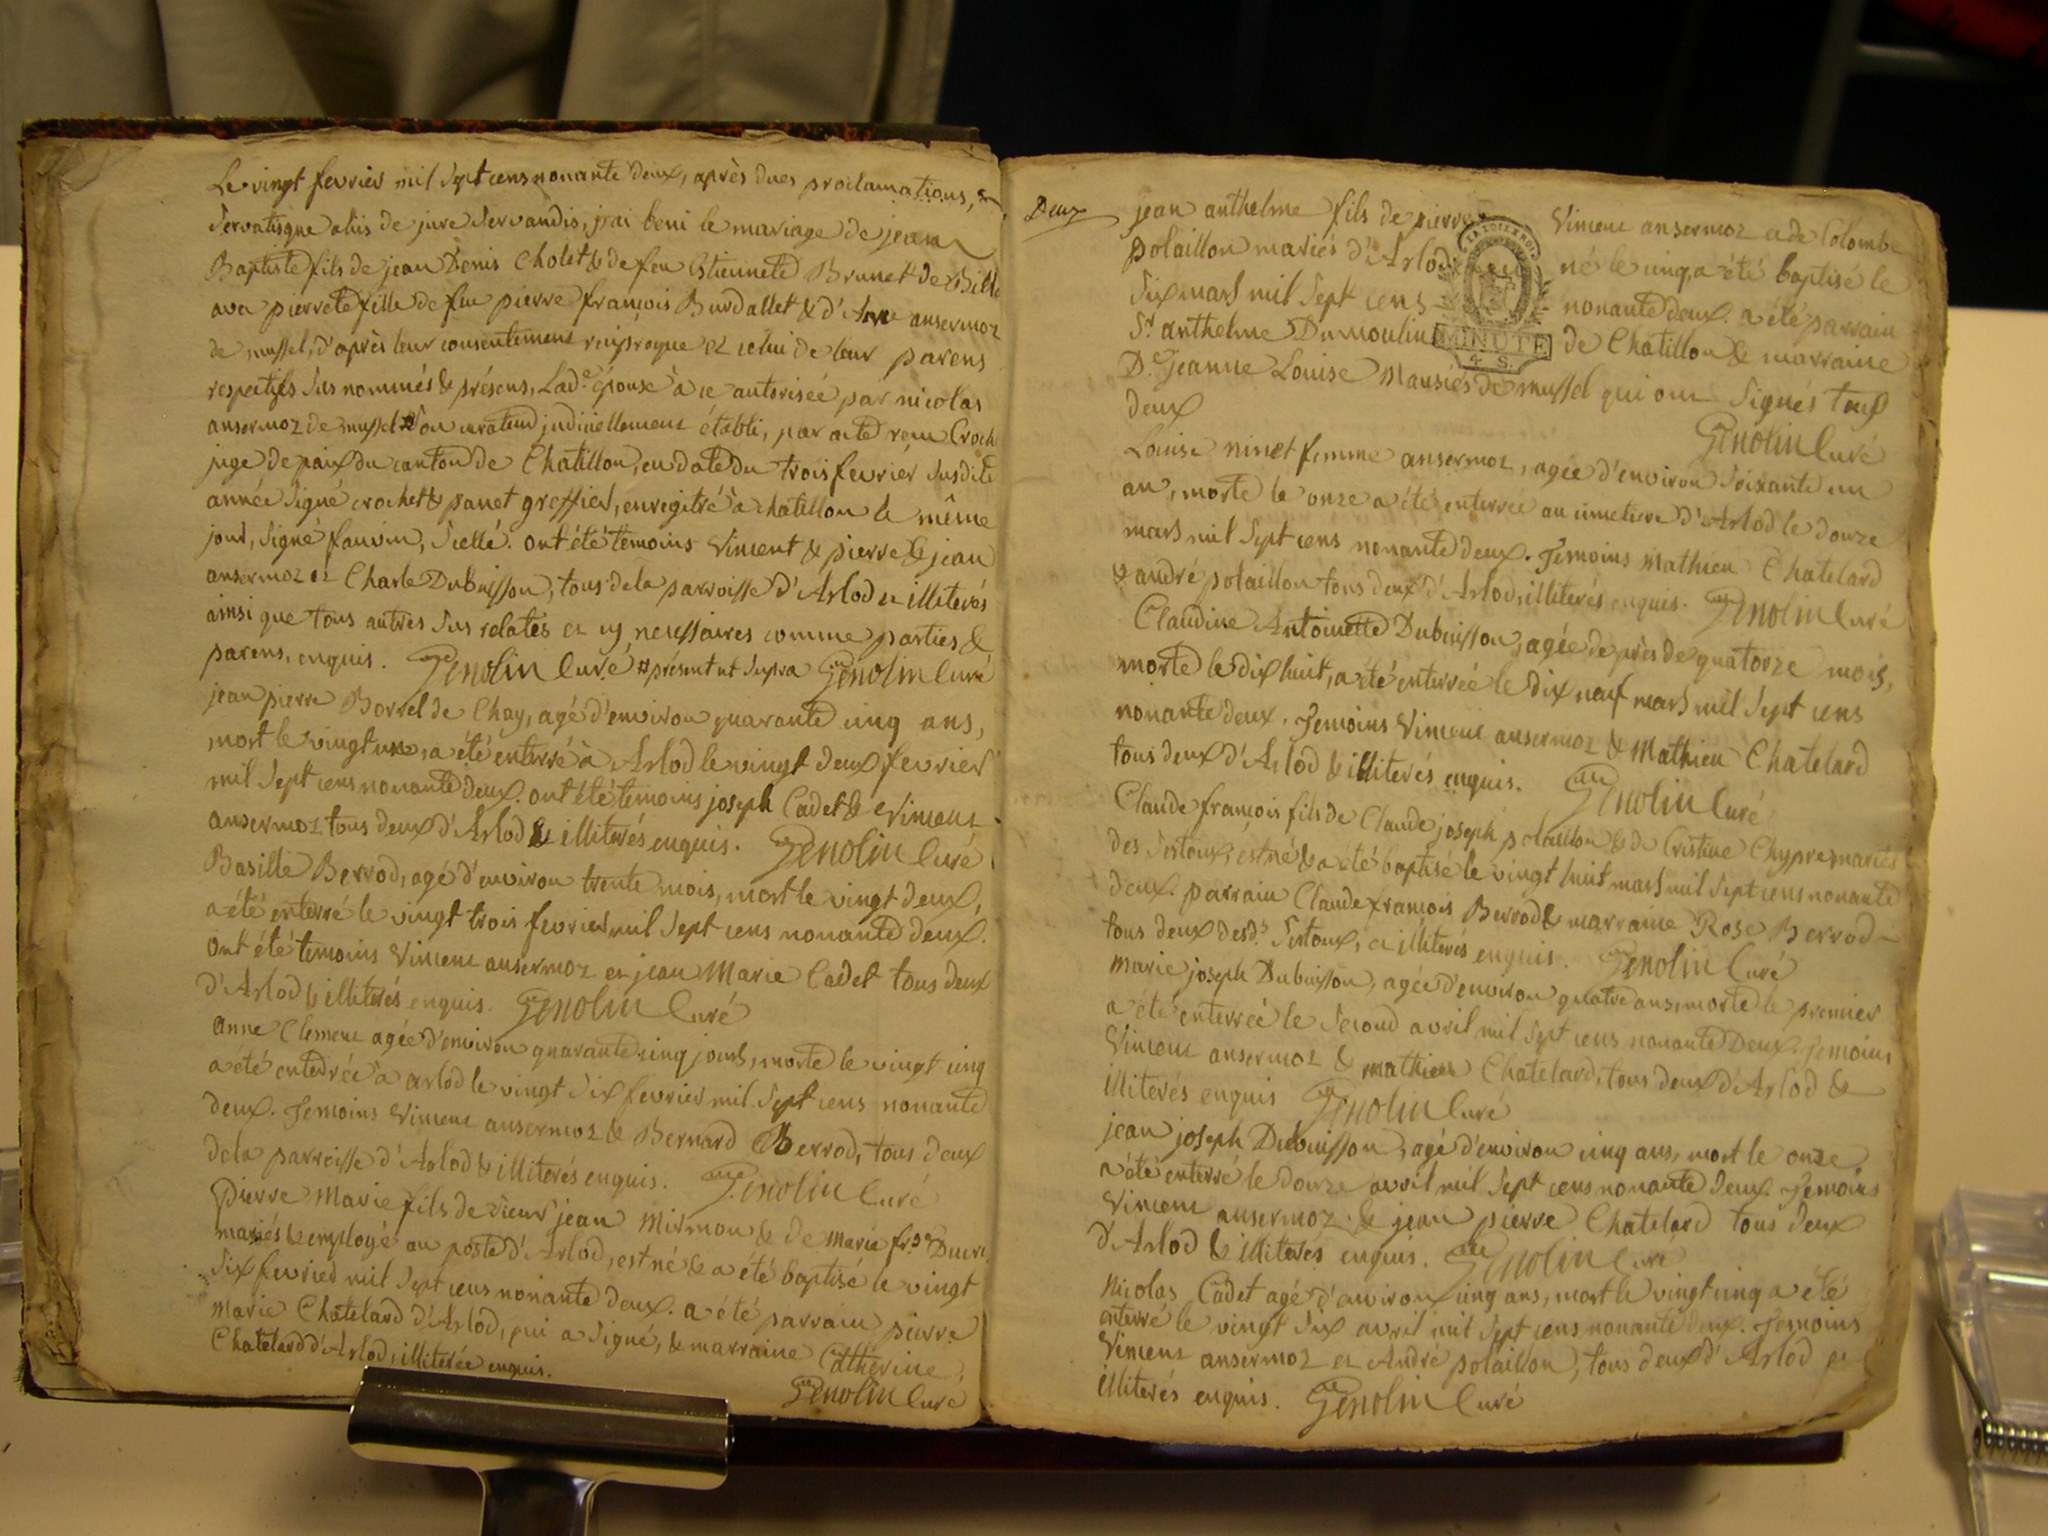 Le vingt fevrier mil Sept cens nonante deux, après dues proclamations, &
Servatisque aliis de jure Servandis, j'ai beni le mariage de jean
Baptiste fils de jean Denis Cholet & de feu Etiennete Brunet de Bill
avec pierrete fille de feu pierre françois Burdallet & d'Anne ansermoz
de mussel, d'après leur consentement reciproque et celui de leur parens
respectifs Sus nommés & présens, Lad.e épouse à ce autorisée par nicolas
ansermoz de mussel # Son curateur judiciellement établi, par acte reçu Croch
juge de paix du canton de Chatillon, en date du trois fevrier Susdite
année Signé crochet & panet greffier, enregitré à chatillon le même
jour, Signé fauvin, Scellé. ont été temoins Vincent & pierre & jean
ansermoz et Charle Dubuisson, tous de la parroisse d'Arlod et illiterés
ainsi que tous autres Sus relatés et cy necessaires comme parties &
parens, enquis. Genolin Curé # présent ut Supra Genolin Curé
jean pierre Borrel de Chay, agé d'environ quarante cinq ans,
mort le vingt un, a été enterré à Arlod le vingt deux fevrier
mil Sept cens nonante deux. ont été temoins joseph Cadet & Vincent
ansermoz tous deux d'Arlod & illiterés enquis. Genolin Curé
Basille Berrod, agé d'environ trente mois, mort le vingt deux,
a été enterré le vingt trois fevrier mil Sept cens nonante deux.
Ont été temoins Vincent ansermoz et jean Marie Cadet tous deux
d'Arlod & illiterés enquis. Genolin Curé
Anne Clement agée d'environ quarante cinq jours, morte le vingt cinq
a été enterrée à arlod le vingt Six fevrier mil Sept cens nonante
deux. Temoins Vincent ansermoz & Bernard Berrod, tous deux
de la parroisse d'Arlod & illiterés enquis. Genolin Curé
Pierre Marie fils de Sieur jean Mirmon & de Marie fr.se Ducre
mariés & employé au poste d'Arlod, est né & a été baptisé le vingt
Six fevrier mil Sept cens nonante deux. a été parrain pierre
Marie Chatelard d'Arlod, qui a Signé, & marraine Catherine
Chatelard d'Arlod, illiterée enquis.
Genolin Curé
Deux
jean anthelme fils de pierre Vincent ansermoz et de Colombe
polaillon mariés d'Arlod né le cinq, a été baptisé le
Six mars mil Sept cens nonante deux. a été parrain
S.r anthelme Dumoulin de Chatillon & marraine
D.e Jeanne Louise Mausiés de mussel qui ont Signés tous
deux
Genolin Curé
LA LOI ET LE ROI
MINUTE
4. S.
Louise ninet femme ansermoz, agée d'environ Soixante un
an, morte le onze a été enterrée au cimetiere d'Arlod le douze
mars mil Sept cens nonante deux. Temoins Mathieu Chatelard
& andré polaillon tous deux d'Arlod, illiterés enquis. Genolin Curé
Claudine Antoinette Dubuisson, agée de près de quatorze mois,
morte le dix huit, a été enterrée le dix neuf mars mil Sept cens
nonante deux. Temoins Vincent ansermoz & Mathieu Chatelard
tous deux d'Arlod & illiterés enquis. Genolin Curé
Claude françois fils de Claude joseph polaillon & de Cristine Chypre mariés
des Sertoux, est né & a été baptisé le vingt huit mars mil Sept cens nonante
deux. parrain Claude françois Berrod & marraine Rose Berrod
tous deux desd.s Sertoux, et illiterés enquis. Genolin Curé
Marie joseph Dubuisson, agée d'environ quatre ans, morte le premier
a été enterrée le Second avril mil Sept cens nonante Deux. Temoins
Vincent ansermoz & Mathieu Chatelard, tous deux d'Arlod &
illiterés enquis Genolin Curé
jean joseph Dubuisson, agé d'environ cinq ans, mort le onze
a été enterré le douze avril mil Sept cens nonante deux. Temoins
Vincent ansermoz & jean pierre Chatelard tous deux
d'Arlod & illiterés enquis. Genolin Curé
Nicolas Cadet agé d'environ cinq ans, mort le vingt cinq a été
enterré le vingt Six avril mil Sept cens nonante deux. Temoins
Vincent ansermoz et André polaillon, tous deux d'Arlod et
illiterés enquis. Genolin Curé